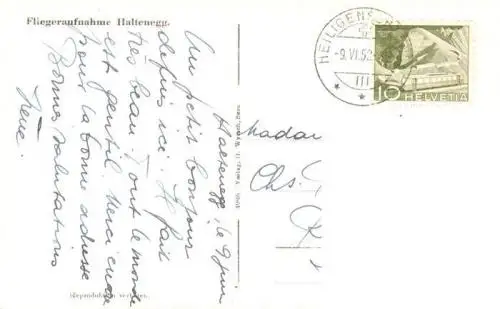 Fliegeraufnahme Haltenegg.
Haltenegg, le 9 juin
Un petit bonjour
depuis ici. Il fait
très beau. Tout le monde
est gentil. Merci encore
pour la bonne adresse
Bonnes salutations
HEILIGENSCHW
-9.VI.52
III
10 HELVETIA
Madam
Chs.
Verlag
(Reproduktion verboten.)